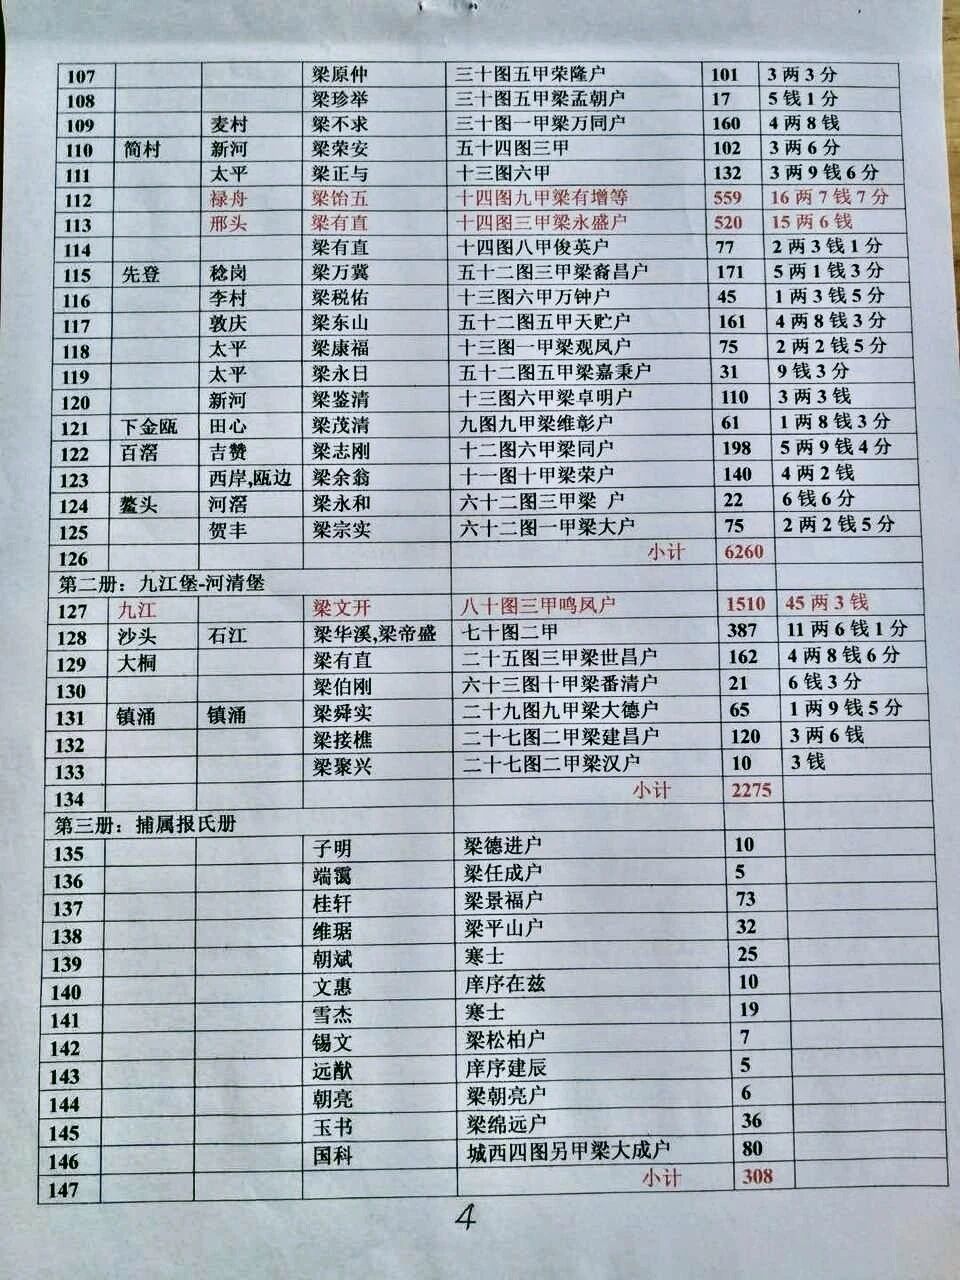 107 梁原仲 三十图五甲荣隆户 101 3两3分
108 梁珍举 三十图五甲梁孟朝户 17 5钱1分
109 麦村 梁不求 三十图一甲梁万同户 160 4两8钱
110 简村 新河 梁荣安 五十四图三甲 102 3两6分
111 太平 梁正与 十三图六甲 132 3两9钱6分
112 禄舟 梁饴五 十四图九甲梁有增等 559 16两7钱7分
113 邢头 梁有直 十四图三甲梁永盛户 520 15两6钱
114 梁有直 十四图八甲俊英户 77 2两3钱1分
115 先登 稔岗 梁万冀 五十二图三甲梁裔昌户 171 5两1钱3分
116 李村 梁税佑 十三图六甲万钟户 45 1两3钱5分
117 敦庆 梁东山 五十二图五甲天贮户 161 4两8钱3分
118 太平 梁康福 十三图一甲梁观凤户 75 2两2钱5分
119 太平 梁永日 五十二图五甲梁嘉秉户 31 9钱3分
120 新河 梁鉴清 十三图六甲梁卓明户 110 3两3钱
121 下金瓯 田心 梁茂清 九图九甲梁维彰户 61 1两8钱3分
122 百滘 吉赞 梁志刚 十二图六甲梁同户 198 5两9钱4分
123 西岸,瓯边 梁余翁 十一图十甲梁荣户 140 4两2钱
124 鳌头 河滘 梁永和 六十二图三甲梁 户 22 6钱6分
125 贺丰 梁宗实 六十二图一甲梁大户 75 2两2钱5分
126 小计 6260
第二册：九江堡-河清堡
127 九江 梁文开 八十图三甲鸣凤户 1510 45两3钱
128 沙头 石江 梁华溪,梁帝盛 七十图二甲 387 11两6钱1分
129 大桐 梁有直 二十五图三甲梁世昌户 162 4两8钱6分
130 梁伯刚 六十三图十甲梁番清户 21 6钱3分
131 镇涌 镇涌 梁舜实 二十九图九甲梁大德户 65 1两9钱5分
132 梁接樵 二十七图二甲梁建昌户 120 3两6钱
133 梁聚兴 二十七图二甲梁汉户 10 3钱
134 小计 2275
第三册：捕属报氏册
135 子明 梁德进户 10
136 端霭 梁任成户 5
137 桂轩 梁景福户 73
138 维琚 梁平山户 32
139 朝斌 寒士 25
140 文惠 庠序在兹 10
141 雪杰 寒士 19
142 锡文 梁松柏户 7
143 远猷 庠序建辰 5
144 朝亮 梁朝亮户 6
145 玉书 梁绵远户 36
146 国科 城西四图另甲梁大成户 80
147 小计 308
4